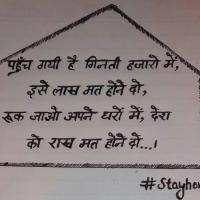 पहुँच गयी है गिनती हजारो में,
इसे लाख मत होने दो,
रूक जाओ अपने घरों में, देश
को राख मत होने दो...!
#Stayho